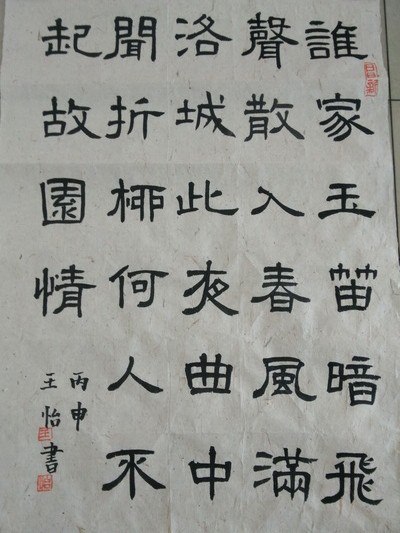 誰家玉笛暗飛
聲散入春風滿
洛城此夜曲中
聞折柳何人不
起故園情
丙申
王怡書